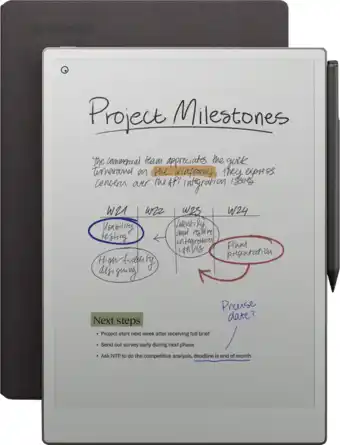 Project Milestones
"The commercial team appreciates the quick
turnaround on the platform, they express
concern over the API integration issues
W21 W22 W23 W24
Usability
testing
Identify
and resolve
integration
issues
Final
preparation
High-fidelity
designing
Precise
date?
Next steps
• Project start next week after receiving full brief
• Send out survey early during next phase
• Ask NTP to do the competitive analysis, deadline is end of month